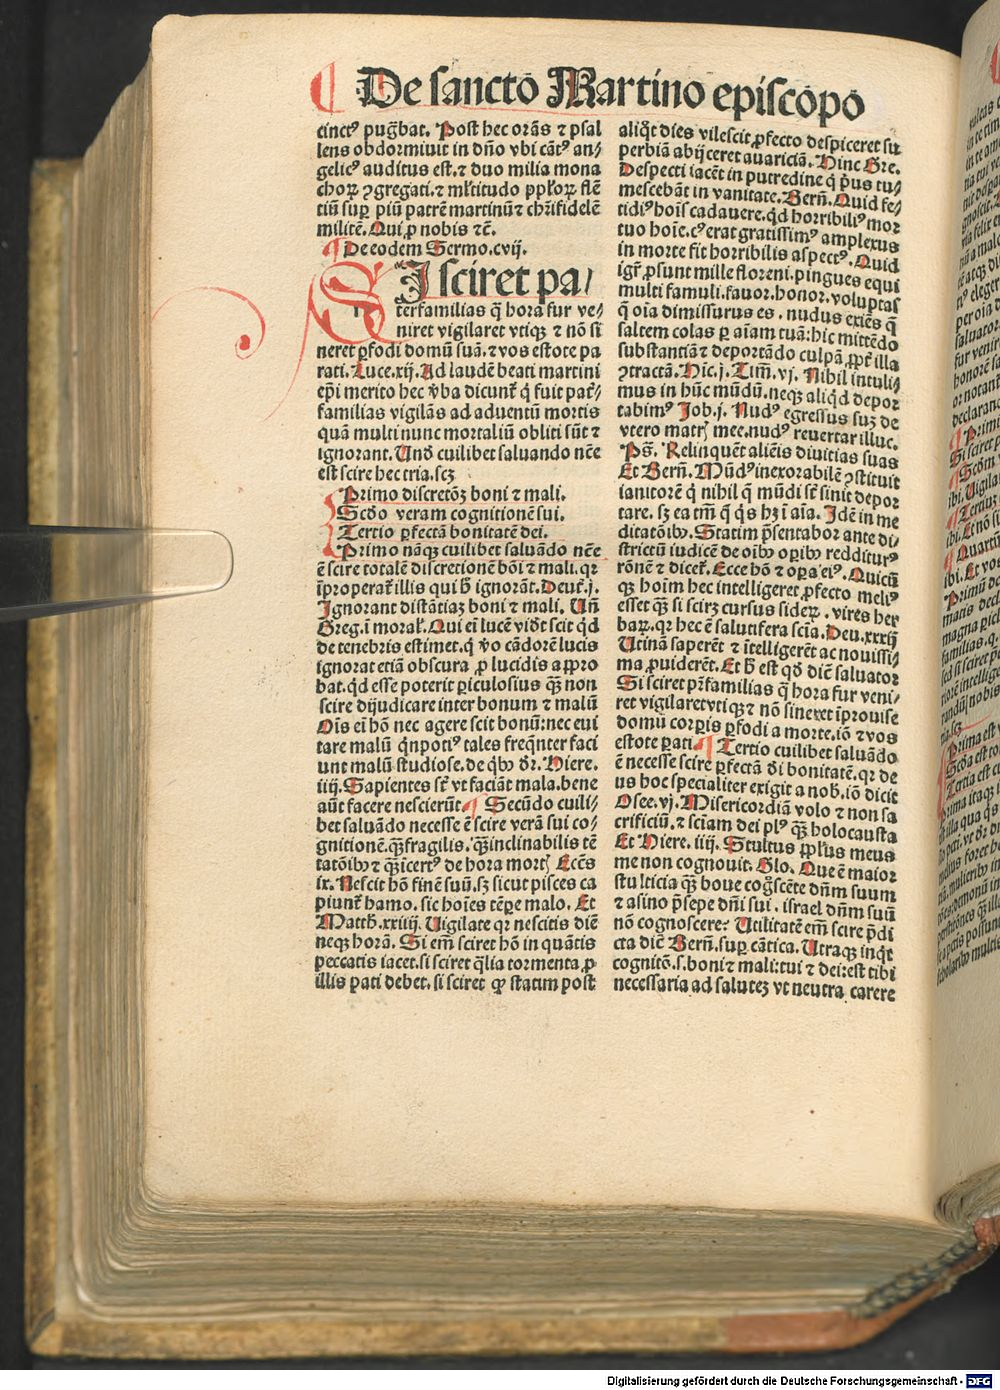 De sancto Martino episcopo
cinctꝰ pugͣbat. Post hec orãs ⁊ psal
lens obdormiuit in dño vbi cãtꝰ an⸗
gelicꝰ auditus est. ⁊ duo milia mona
choꝝ ꝯgregati. ⁊ ml̃titudo ppl̓oꝝ flẽ
tiũ suꝑ piũ patrẽ martinũ ⁊ chr̃i fidelẽ
militẽ. Qui ꝓ nobis ⁊c̃.
De eodem Sermo. cvij.
SI sciret pa⸗
terfamilias q̃ hora fur ve⸗
niret vigilaret vtiqꝫ ⁊ nõ si
neret ꝑfodi domũ suã. ⁊ vos estote pa
rati. Luce. xij. Ad laudẽ beati martini
ep̃i merito hec v̓ba dicunt̃ q̓ fuit pat̃
familias vigilãs ad aduentũ mortis
quã multi nunc mortaliũ obliti sũt ⁊
ignorant. Unď cuilibet saluando nẽe
est scire hec tria. scꝫ
Primo discretõꝫ boni ⁊ mali.
Scďo veram cognitionẽ sui.
Tertio ꝑfectã bonitatẽ dei.
Primo nãqꝫ cuilibet saluãdo nẽe
ẽ scire totalẽ discretionẽ bõi ⁊ mali. qꝛ
ĩproperat̃ illis qui ħ ignorãt. Deut̃. j.
Ignorant distãtiaꝫ boni ⁊ mali. Uñ
Greg. ĩ moral̓. Qui ei̓ lucẽ vidͦt scit qͥd
de tenebris estimet. q̓ v̓o cãdorẽ lucis
ignorat etiã obscura ꝓ lucidis appro
bat. qͥd esse poterit ꝑiculosius qͣꝫ non
scire dijudicare inter bonum ⁊ malũ
Oĩs ei̓ hõ nec agere scit bonũ: nec eui
tare malũ qͥnpotiꝰ tales freq̃nter faci
unt malũ studiose. de qͥbꝰ dr̃. Hiere.
iiij. Sapientes st̃ vt faciãt mala. bene
aũt facere nescierũt ¶ Secũdo cuili⸗
bet saluãdo necesse ẽ scire verã sui co⸗
gnitionẽ. qͣꝫ fragilis. qͣꝫ inclinabilis tẽ
tatõibꝰ ⁊ qͣꝫ incertꝰ de hora mortꝭ Ecc̃s
ix. Nescit hõ finẽ suũ. sꝫ sicut pisces ca
piunt̃ hamo. sic hoĩes tẽpe malo. Et
Matth. xxiiij. Uigilate qꝛ nescitis diẽ
neqꝫ horã. Si em̃ sciret hõ in quãtis
peccatis iacet. si sciret q̃lia tormenta ꝓ
illis pati debet. si sciret ꝙ statim post
aliq̃t dies vilescit, ꝓfecto despiceret su
perbiã abijceret auariciã. Hinc Gre.
Despecti iacẽt in putredine q̓ pͥus tu⸗
mescebãt in vanitate. Bern̄. Quid fe⸗
tidiꝰ hoĩs cadauere. qͥd horribiliꝰ mor
tuo hoĩe. cꝰ erat gratissimꝰ amplexus
in morte fit horribilis aspectꝰ. Quid
igit̃ ꝓsunt mille floreni. pingues equi
multi famuli. fauor. honor. voluptas
q̃ oĩa dimissurus es. nudus exiẽs q̃
saltem colas ꝑ aĩam tuã: hic mittẽdo
substantiã ⁊ deportãdo culpã ꝓpt̃ illa
ꝯtractã. Hic. j. Tim̃. vj. Nihil intuli⸗
mus in hũc mũdũ. neqꝫ aliqͥd depor
tabimꝰ Job. j. Nudꝰ egressus suꝫ de
vtero matrꝭ mee. nudꝰ reuertar illuc.
Ps̃. Relinquẽt alieĩs diuitias suas
Et Bern̄. Mũdꝰ inexorabilẽ ꝯstituit
ianitorẽ q̓ nihil q̓ mũdi st̃ sinit depor
tare. sꝫ ea tm̃ q̃ qͥs hꝫ ĩ aĩa. Idẽ in me
ditatõibꝰ. Statim p̃sentabor ante di⸗
strictũ iudicẽ de oĩbꝰ oꝑibꝰ redditurꝰ
rõnẽ ⁊ dicet̃. Ecce hõ ⁊ oꝑa eiꝰ. Quicũ
qꝫ hoĩm hec intelligeret ꝓfecto meliꝰ
esset qͣꝫ si scirꝫ cursus sideꝝ. vires her
baꝝ. qꝛ hec ẽ salutifera scĩa. Deu. xxxij
Utinã saperẽt ⁊ ĩtelligerẽt ac nouissi⸗
ma ꝓuiderẽt. Et ħ est qďͦ diẽ saluator
Si sciret pr̃familias q̃ hora fur veni⸗
ret vigilaret vtiqꝫ ⁊ nõ sineret ĩprouise
domũ corꝑis ꝑfodi a morte. iõ ⁊ vos
estote ꝑati. ¶ Tertio cuilibet saluãdo
ẽ necesse scire ꝑfectã di̓ bonitatẽ. qꝛ de
us hoc specialiter exigit a nob̓. iõ dicit
Osee. vj. Misericordiã volo ⁊ non sa
crificiũ. ⁊ sciam dei plꝰ qͣꝫ holocausta
Et Hiere. iiij. Stultus ppl̓us meus
me non cognouit. Glo. Que ẽ maior
stulticia qͣꝫ boue cog̃scẽte dñm suum
⁊ asino p̃sepe dñi sui. israel dñm suũ
nõ cognoscere? Utilitatẽ em̃ scire p̃di
cta diẽ Bern̄. suꝑ cãtica. Utraqꝫ inqͥt
cognitõ. s. boni ⁊ mali: tui ⁊ dei: est tibi
necessaria ad saluteꝫ vt neutra carere
Digitalisierung gefördert durch die Deutsche Forschungsgemeinschaft - DFG